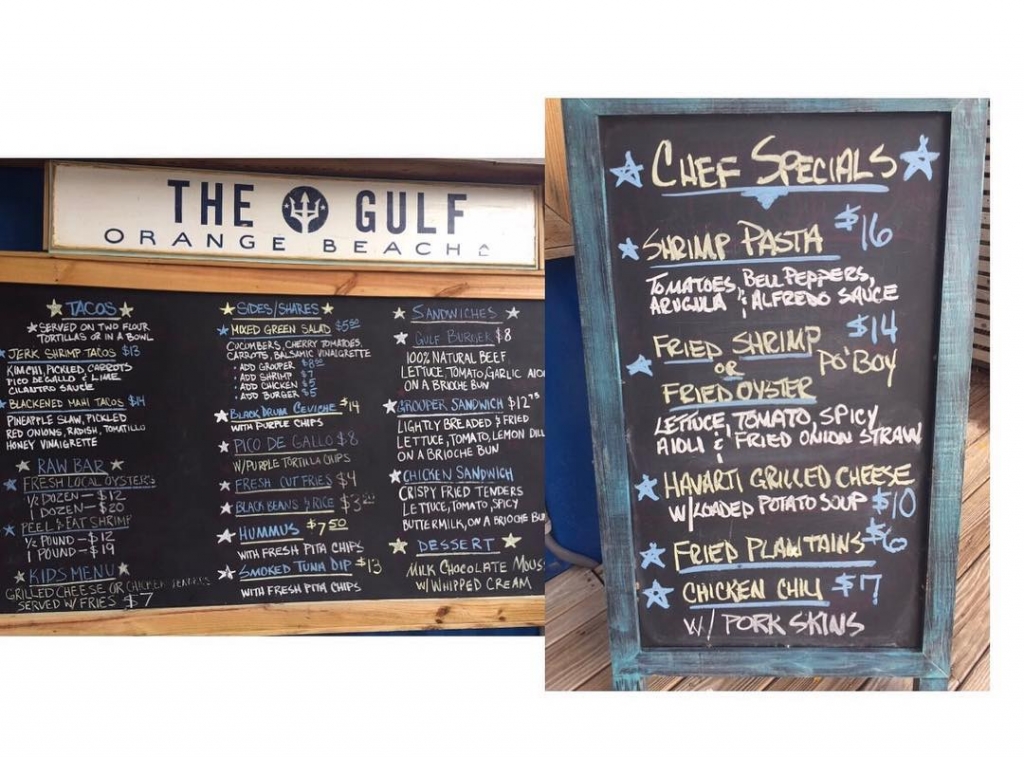 THE GULF
ORANGE BEACH
TACOS
SERVED ON TWO FLOUR
TORTILLAS OR IN A BOWL
JERK SHRIMP TACOS $13
KIMCHI, PICKLED CARROTS
PICO DE GALLO & LIME
CILANTRO SAUCE
BLACKENED MAHI TACOS $14
PINEAPPLE SLAW, PICKLED
RED ONIONS, RADISH, TOMATILLO
HONEY VINAIGRETTE
RAW BAR
FRESH LOCAL OYSTERS
1/2 DOZEN — $12
1 DOZEN — $20
PEEL & EAT SHRIMP
1/2 POUND — $12
1 POUND — $19
KIDS MENU
GRILLED CHEESE OR CHICKEN TENDERS
SERVED W/ FRIES $7
SIDES/SHARES
MIXED GREEN SALAD
CUCUMBERS, CHERRY TOMATOES,
CARROTS, BALSAMIC VINAIGRETTE
· ADD GROUPER
· ADD SHRIMP $7
· ADD CHICKEN $5
· ADD BURGER $5
BLACK DRUM CEVICHE $14
WITH PURPLE CHIPS
PICO DE GALLO $8
W/PURPLE TORTILLA CHIPS
FRESH CUT FRIES $4
BLACK BEANS & RICE
HUMMUS $7.50
WITH FRESH PITA CHIPS
SMOKED TUNA DIP $13
WITH FRESH PITA CHIPS
SANDWICHES
GULF BURGER $8
100% NATURAL BEEF
LETTUCE, TOMATO, GARLIC AIO
ON A BRIOCHE BUN
GROUPER SANDWICH $12.75
LIGHTLY BREADED & FRIED
LETTUCE, TOMATO, LEMON DILL
ON A BRIOCHE BUN
CHICKEN SANDWICH
CRISPY FRIED TENDERS
LETTUCE, TOMATO, SPICY
BUTTERMILK, ON A BRIOCHE BU
DESSERT
MILK CHOCOLATE MOUS
W/ WHIPPED CREAM
CHEF SPECIALS
SHRIMP PASTA $16
TOMATOES, BELL PEPPERS,
ARUGULA & ALFREDO SAUCE
FRIED SHRIMP $14
OR PO'BOY
FRIED OYSTER
LETTUCE, TOMATO, SPICY
AIOLI & FRIED ONION STRAW
HAVARTI GRILLED CHEESE
W/LOADED POTATO SOUP $10
FRIED PLANTAINS $6
CHICKEN CHILI $7
W/ PORK SKINS